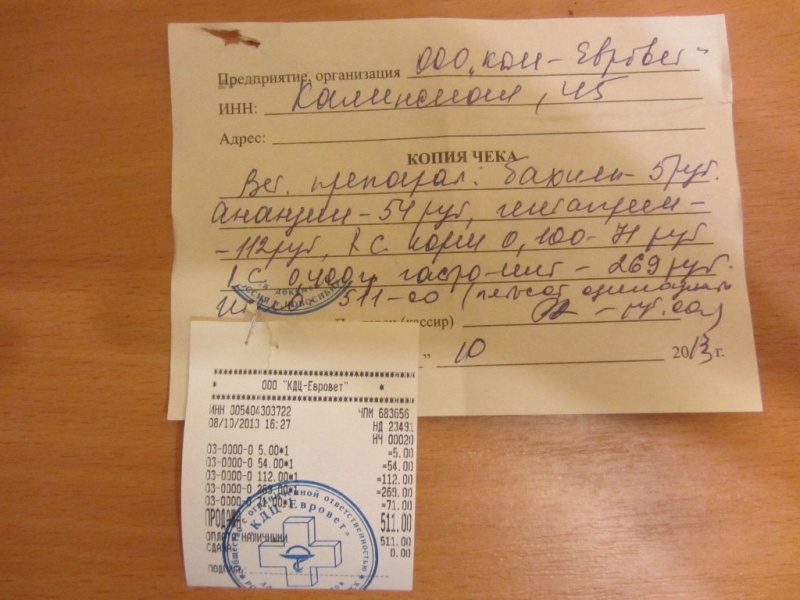 Предприятие, организация ООО „КДЦ - Евровет"
ИНН: Калинина, 45
Адрес:
КОПИЯ ЧЕКА
Вет. препарат: бахилы - 5 руб.
Анандин - 54 руб,
- 112 руб, R.C. корм 0,100 - 71 руб
R.C. 0,400 гастро - 269 руб.
511-00 (пятьсот одиннадцать
(кассир) - руб. 00)
" 10 2013 г.
ООО "КДЦ-Евровет"
ИНН 005404303722 ЧПМ 683656
08/10/2013 16:27 НД 23491
НЧ 00020
03-0000-0 5.00*1 =5.00
03-0000-0 54.00*1 =54.00
03-0000-0 112.00*1 =112.00
03-0000-0 269.00*1 =269.00
03-0000-0 71.00*1 =71.00
ПРОДАЖА 511.00
НАЛИЧНЫМИ 511.00
СДАЧА 0.00
Общество с ограниченной ответственностью
"КДЦ-Евровет"